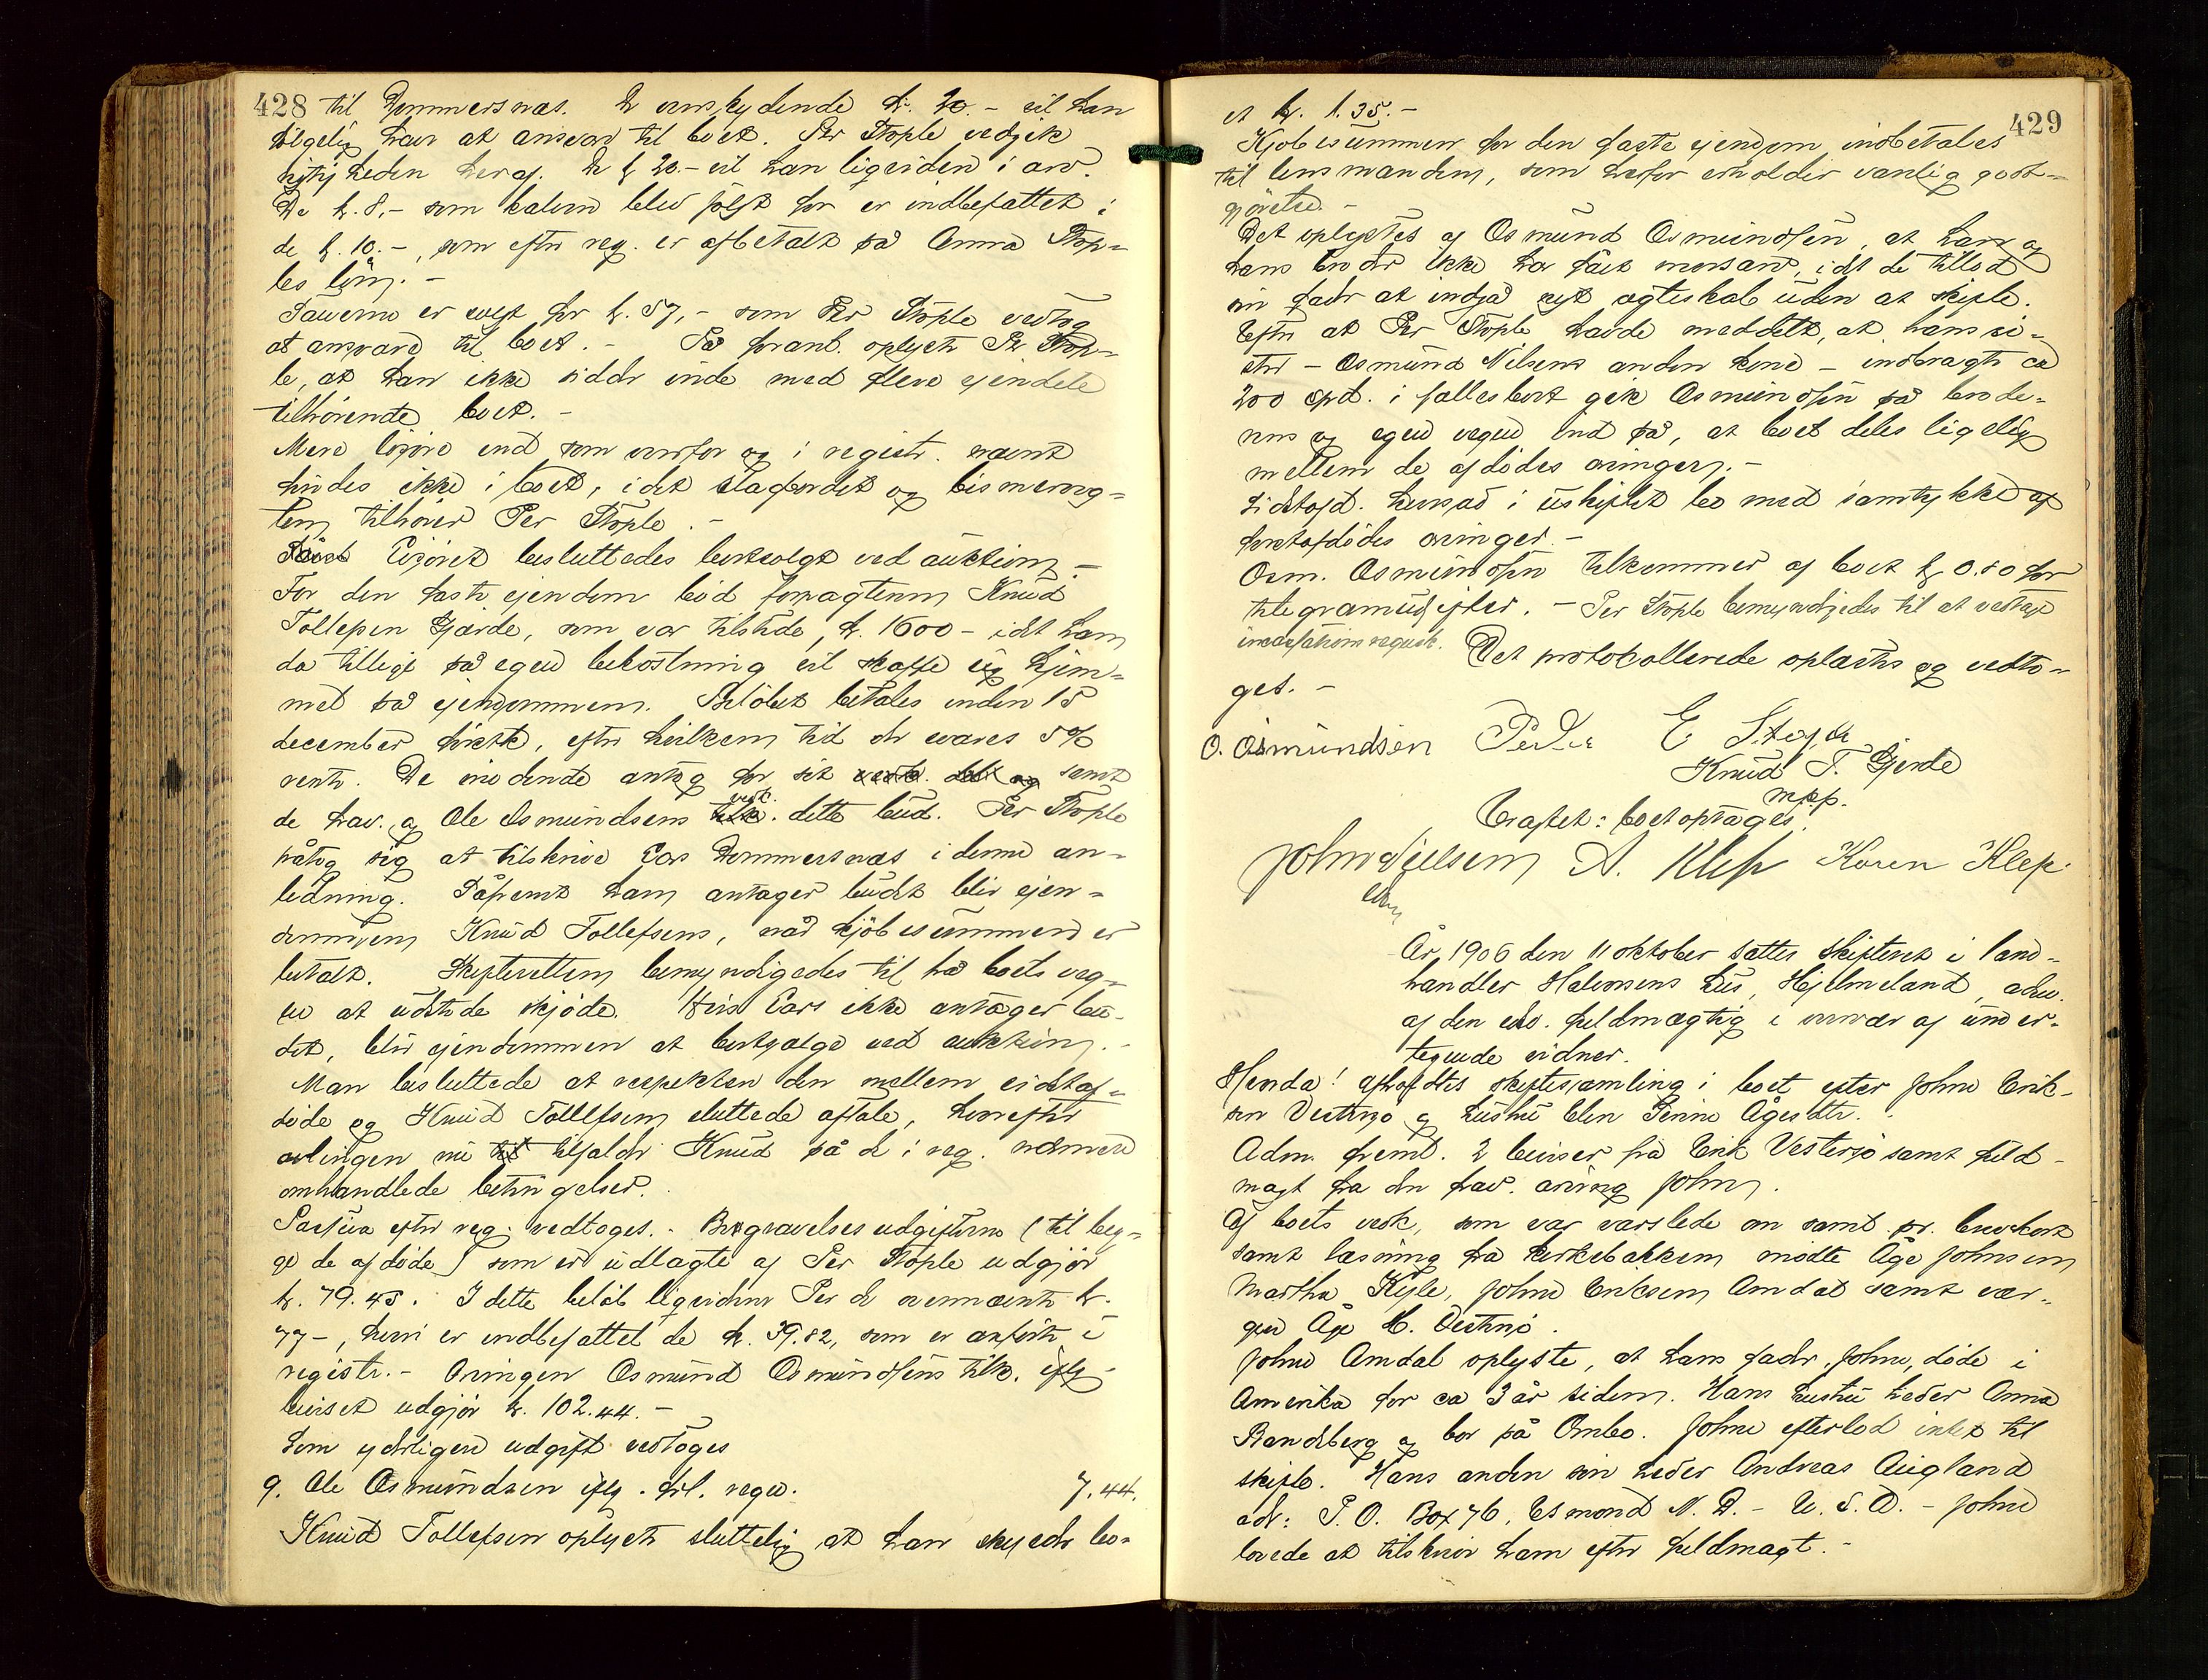 428 til Dommersnæs. De overskydende kr. 20.- vil han
følgelig have at ansvare til boet. Per Støple vedgik
rigtigheden heraf. De kr 20.- vil han ligviden i arv.
De kr. 8,- som kalven blev solgt for er indbefattet i
de kr. 10.-, som efter reg. er afbetalt på Anna Støp-
les løn. -
Sauerne er solgt for kr. 57,- som Per Støple vedtog
at ansvare til boet. - På foranl. oplyste Per Støp-
le, at han ikke sidder inde med flere eiendele
tilhørende boet. -
Mere løsøre end som ovenfor og i registr. nævnt
findes ikke i boet, idet slagbordet og bismerveg-
ten tilhører Per Støple. -
Løsøret besluttedes bortsolgt ved auktion. -
For den faste ejendom bød forpagteren Knud
Tollefsen Gjærde, som var tilstede, kr. 1600 - idet han
da tillige på egen bekostning vil skaffe sig hjem-
mel på ejendommen. Beløbet betales inden 15
december førstk., efter hvilken tid der svares 5%
rente. De mødende antog for sit vedk. samt
de frav. og Ole Osmundsens vedk. dette bud. Per Støple
påtog sig at tilskrive Lars Dommersnæs i denne an-
ledning. Såfremt han antager budet blir ejen-
dommen Knud Tollefsens, når kjøbesummen er
betalt. Skifteretten bemyndigedes til på boets veg-
ne at udstede skjøde. Hvis Lars ikke antager bu-
det, blir ejendommen at bortsælge ved auktion. -
Man besluttede at respektere den mellem sidstaf-
døde og Knud Tollefsen sluttede aftale, hvorefter
avlingen nu tilfalder Knud på de i reg. nærmere
omhandlede betingelser.
Passiva efter reg. vedtoges. - Begravelsesudgifterne (til beg-
ge de afdøde) som er udlagte af Per Støple udgjør
kr. 79.45. I dette beløb ligviderer Per de ovennævnte kr.
77-, hvori er indbefattet de kr. 39.82, som er anført i
registr. - Arvingen Osmund Osmundsens tilk. iflg
beviset udgjør kr. 102.44. -
Som yderligere udgift vedtoges
9. Ole Osmundsen iflg. fril. regn. 7.44.
Knud Tollefsen oplyste sluttelig at han skyder bo-
429
et kr. 1.35. -
Kjøbesummen for den faste ejendom indbetales
til lensmanden, som herfor erholder vanlig godt-
gjørelse. -
Det oplystes af Osmund Osmundsen, at han og
hans brødre ikke har fået morsarv, idet de tillod
sin fader at indgå nyt ægteskab uden at skifte.
Efter at Per Støple havde meddelt, at hans sø-
ster - Osmund Nilsens anden kone - indbragte ca
200 spd. i fællesboet gik Osmundsen på brøde-
rens og egne vegne ind på, at boet deles ligelig
mellem de afdødes arvinger. -
Sidstafd. hensad i uskiftet bo med samtykke af
førstafdødes arvinger. -
Osm. Osmundsen tilkommer af boet kr 0.80 for
telegramudgifter. - Per Støple bemyndigedes til at vedtage
Det protokollerede oplæstes og vedto-
ges. -
O. Osmundsen Peder E Støple
Knud T. Gjerde
m.p.p.
Eragtet: boet optages.
John Nielsen A. Klep Karen Klep.
År 1906 den 11 oktober sattes skifteret i land-
handler Halvorsens hus, Hjelmeland, adm.
af den edsv. fuldmægtig i overvær af under-
tegnede vidner.
Henda! afholdtes skiftesamling i boet efter John Erik-
sen Vestersjø og hustru Elen Serine Ågesdtr. -
Adm. freml. 2 beviser fra Erik Vestersjø samt fuld-
magt fra den frav. arving John.
Af boets vedk., som var varslede om samt. pr. brevkort
samt læsning fra kirkebakken mødte Åge Johnsen
Martha Kyle, John Eriksen Amdal samt vær-
gen Åge H. Vestersjø.
John Amdal oplyste, at hans fader, John, døde i
Amerika for ca 3 år siden. Hans hustru heder Anna
Randeberg og bor på Ombo. John efterlod intet til
skifte. Hans anden søn heder Andreas Aigland
adr: P. O. Box 76, Esmond N. D. - U. S. A. - John
lovede at tilskrive ham efter fuldmagt. -